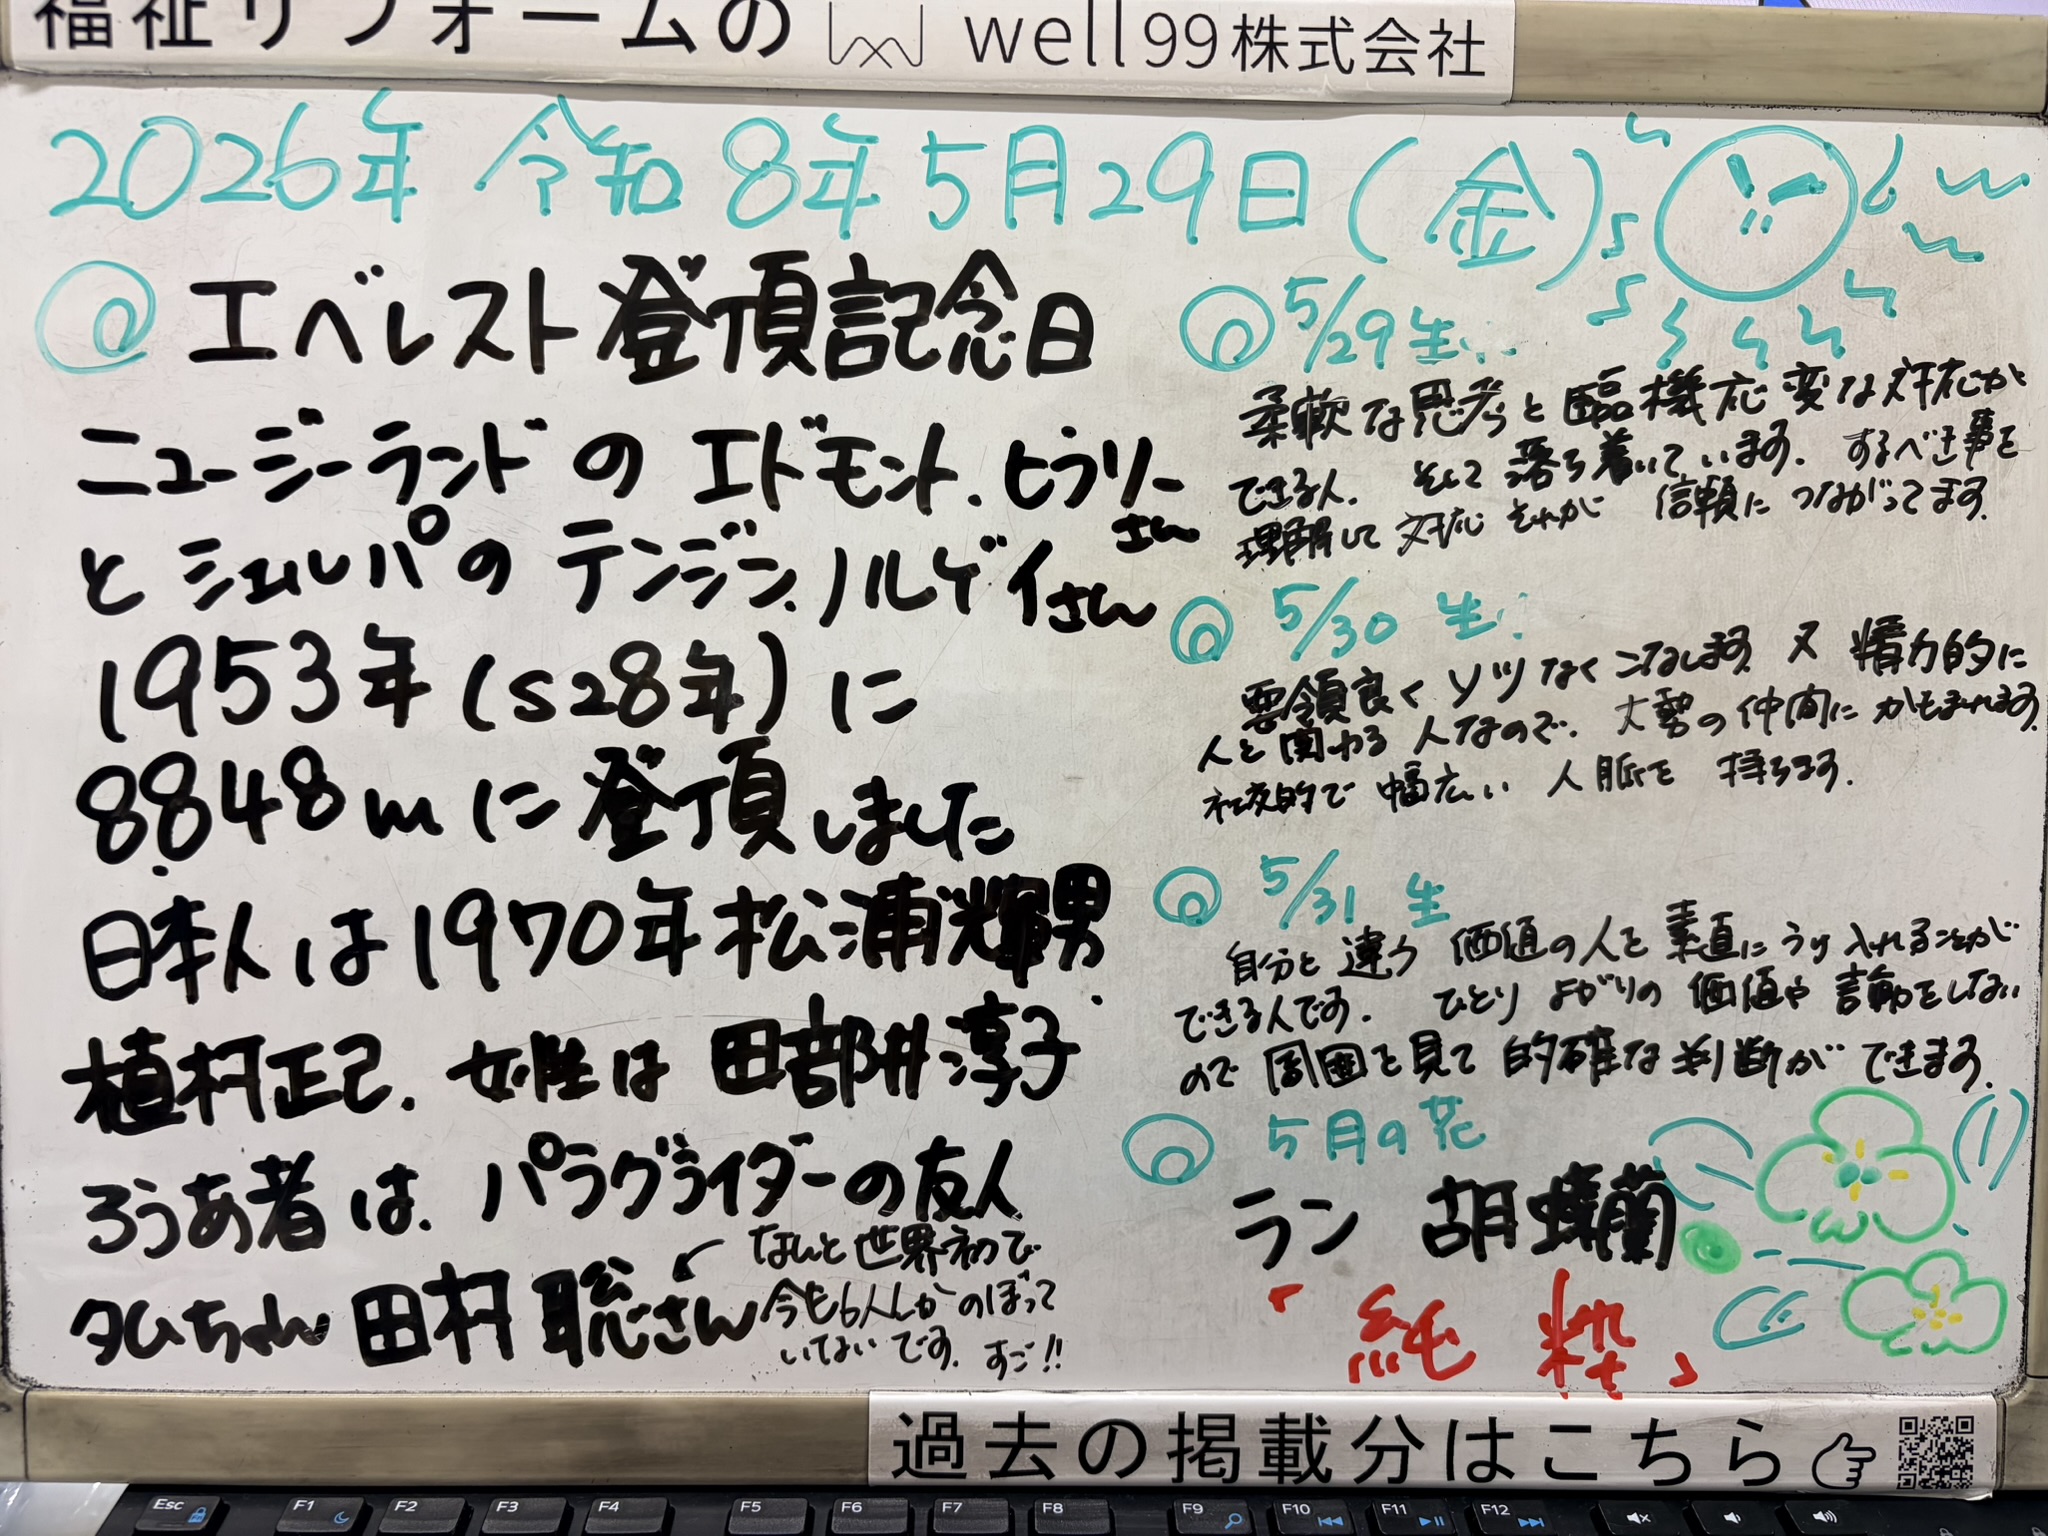 福祉リフォームの well99株式会社
2026年 令和8年5月29日(金)
エベレスト登頂記念日
ニュージーランドの エドモント.ヒラリー
さん
と シェルパの テンジン.ノルゲイさん
1953年(S28年)に
8848mに登頂しました
日本人は1970年松浦輝男.
植村正己.女性は田部井淳子
ろうあ者は.パラグライダーの友人
タムちゃん 田村 聡さん
なんと世界初で
今も6人しかのぼって
いないです. すご!!
5/29生:
柔軟な思考と臨機応変な対応が
できる人. そして落ち着いています. するべき事を
理解して対応 それが 信頼につながってます.
5/30 生:
要領良く ソツなくこなします. 又 精力的に
人と関わる 人なので. 大勢の仲間にかこまれます.
社交的で 幅広い 人脈を 持ちます.
5/31 生
自分と違う 価値の人を素直にうけ入れることが
できる人です. ひとりよがりの価値や言動をしない
ので 周囲を見て 的確な判断ができます.
5月の花
ラン 胡蝶蘭
「純粋」
過去の掲載分はこちら
Esc
F1
F2
F3
F4
F5
F6
F7
F8
F9
F10
F11
F12